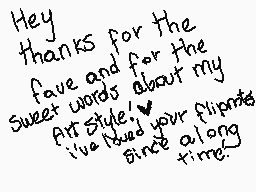 Hey
thanks for the
fave and for the
sweet words about my
Art style! ♥
i've loved your flipnotes
since along
time!